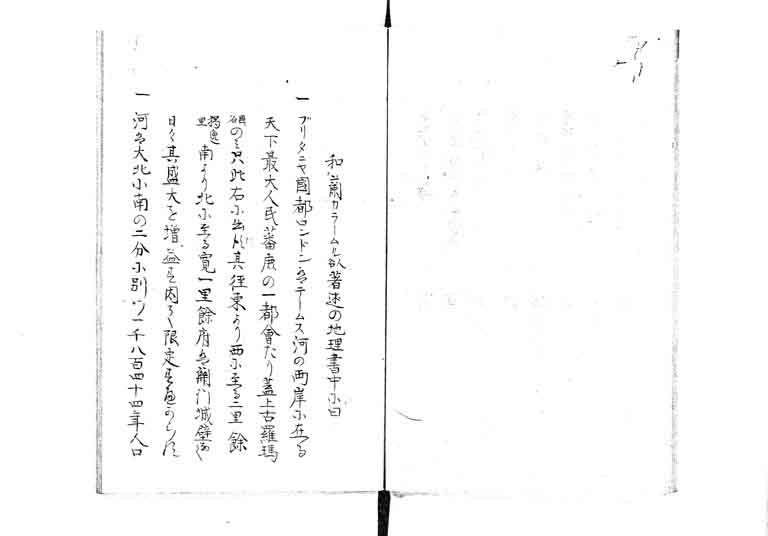 和蘭カラームル欽著述の地理書中に曰
一 ブリタニヤ國都ロンドンはテームス河の両岸に在る
天下最大人民蕃庶の一都會たり蓋上古羅瑪
のミ只此右に出ツ其徑東より西に至る二里餘
里 南より北に至る寛一里餘府は關門城壁なく
日々其盛大を増益す限定す
一 河は大北小南の二分に別ツ一千八百四十四年人口